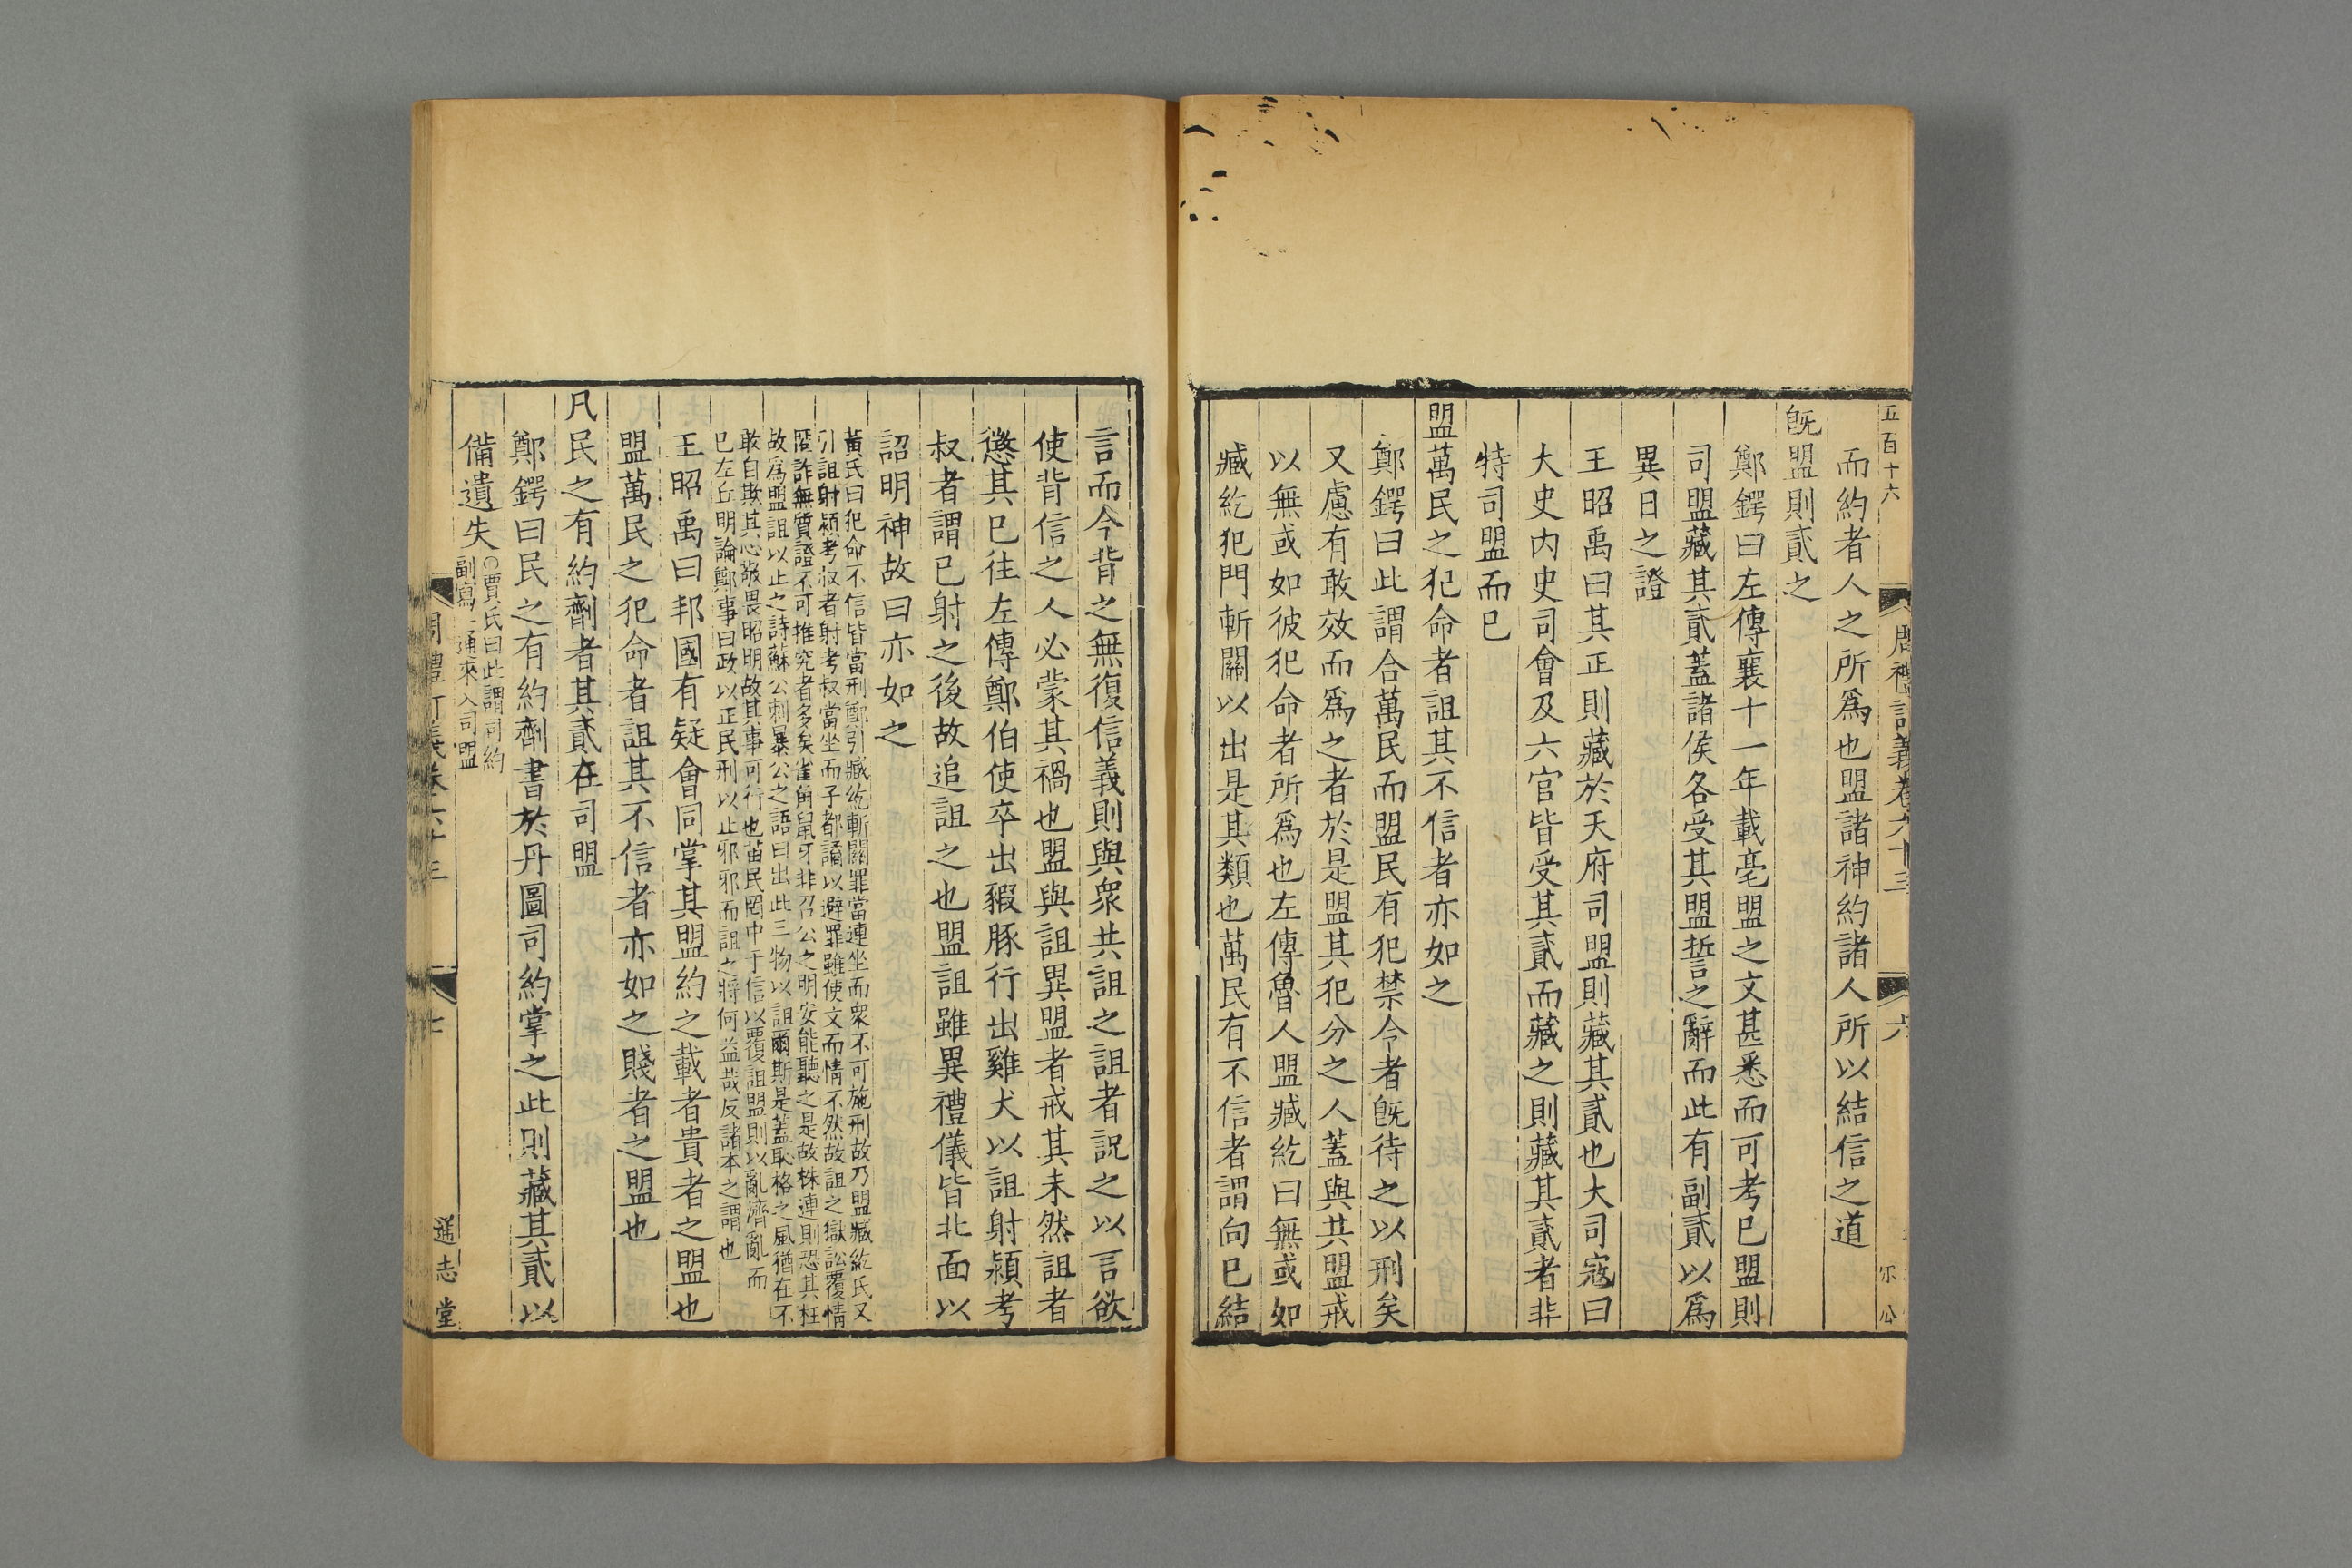 五百十六
周禮訂義卷六十三
六
而約者人之所爲也盟諸神約諸人所以結信之道
旣盟則貳之
鄭鍔曰左傳襄十一年載亳盟之文甚悉而可考已盟則
司盟藏其貳蓋諸侯各受其盟誓之辭而此有副貳以爲
異日之證
王昭禹曰其正則藏於天府司盟則藏其貳也大司寇曰
大史內史司會及六官皆受其貳而藏之則藏其貳者非
特司盟而已
盟萬民之犯命者詛其不信者亦如之
鄭鍔曰此謂合萬民而盟民有犯禁令者旣待之以刑矣
又慮有敢效而爲之者於是盟其犯分之人蓋與共盟戒
以無或如彼犯命者所爲也左傳魯人盟臧紇曰無或如
臧紇犯門斬關以出是其類也萬民有不信者謂向已結
言而今背之無復信義則與衆共詛之詛者說之以言欲
使背信之人必蒙其禍也盟與詛異盟者戒其未然詛者
懲其已往左傳鄭伯使卒出豭豚行出雞犬以詛射潁考
叔者謂已射之後故追詛之也盟詛雖異禮儀皆北面以
詔明神故曰亦如之
黃氏曰犯命不信皆當刑鄭引臧紇斬關罪當連坐而衆不可施刑故乃盟臧紇氏又
引詛射潁考叔者射考叔當坐而子都誦以避罪雖使文而情不然故詛之獄訟覆情
匿詐無質證不可推究者多矣雀角鼠牙非召公之明安能聽之是故株連則恐其枉
故爲盟詛以止之詩蘇公刺暴公之語曰出此三物以詛爾斯是蓋恥格之風猶在不
敢自欺其心敬畏昭明故其事可行也苗民罔中于信以覆詛盟則以亂濟亂而
已左丘明論鄭事曰政以正民刑以止邪邪而詛之將何益哉反諸本之謂也
王昭禹曰邦國有疑會同掌其盟約之載者貴者之盟也
盟萬民之犯命者詛其不信者亦如之賤者之盟也
凡民之有約劑者其貳在司盟
鄭鍔曰民之有約劑書於丹圖司約掌之此則藏其貳以
備遺失○賈氏曰此謂司約
副寫一通來入司盟
周禮訂義卷六十三
七
通志堂